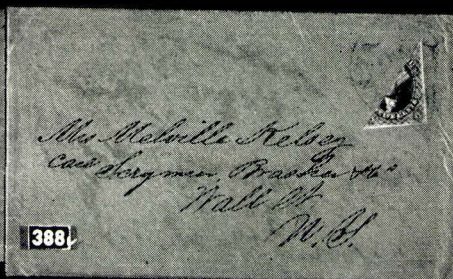 Mrs Melville Kelsey
care Scrymser, &Co
Wall St
N.Y.
388